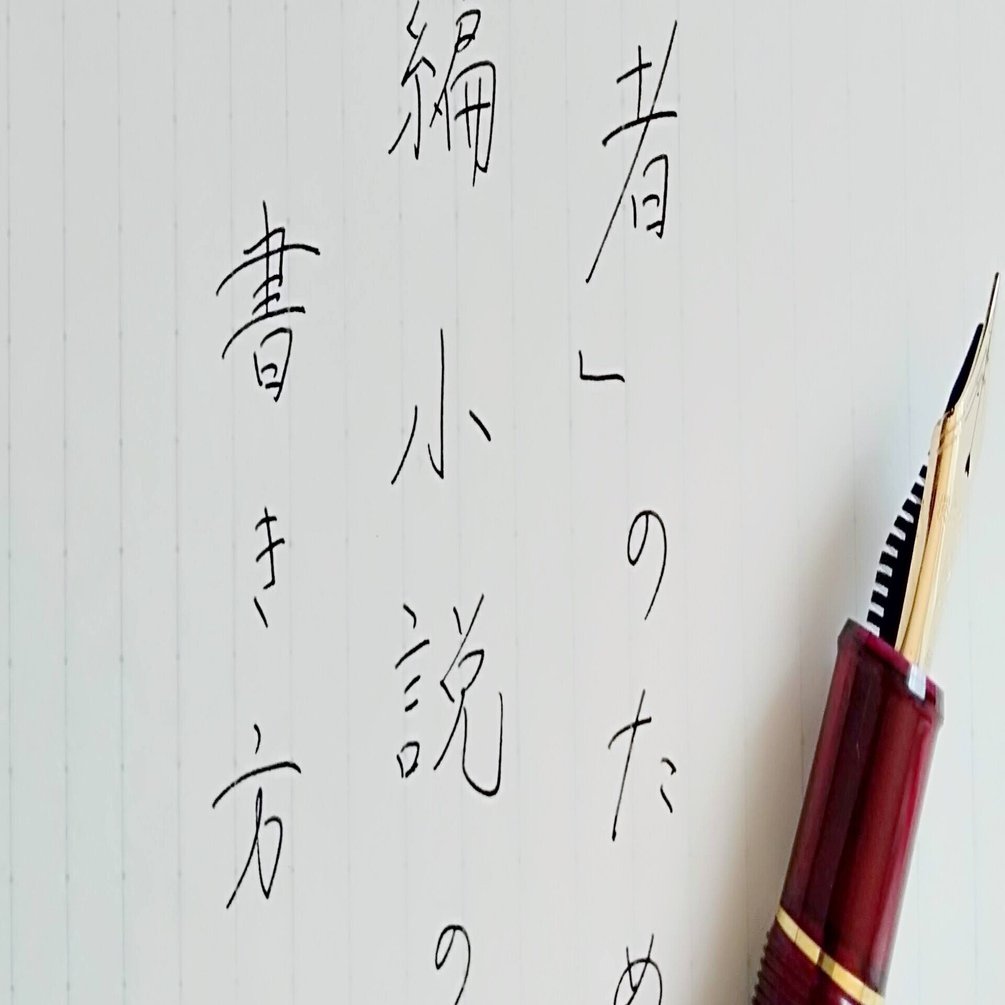 者」のため
編小説の
書き方